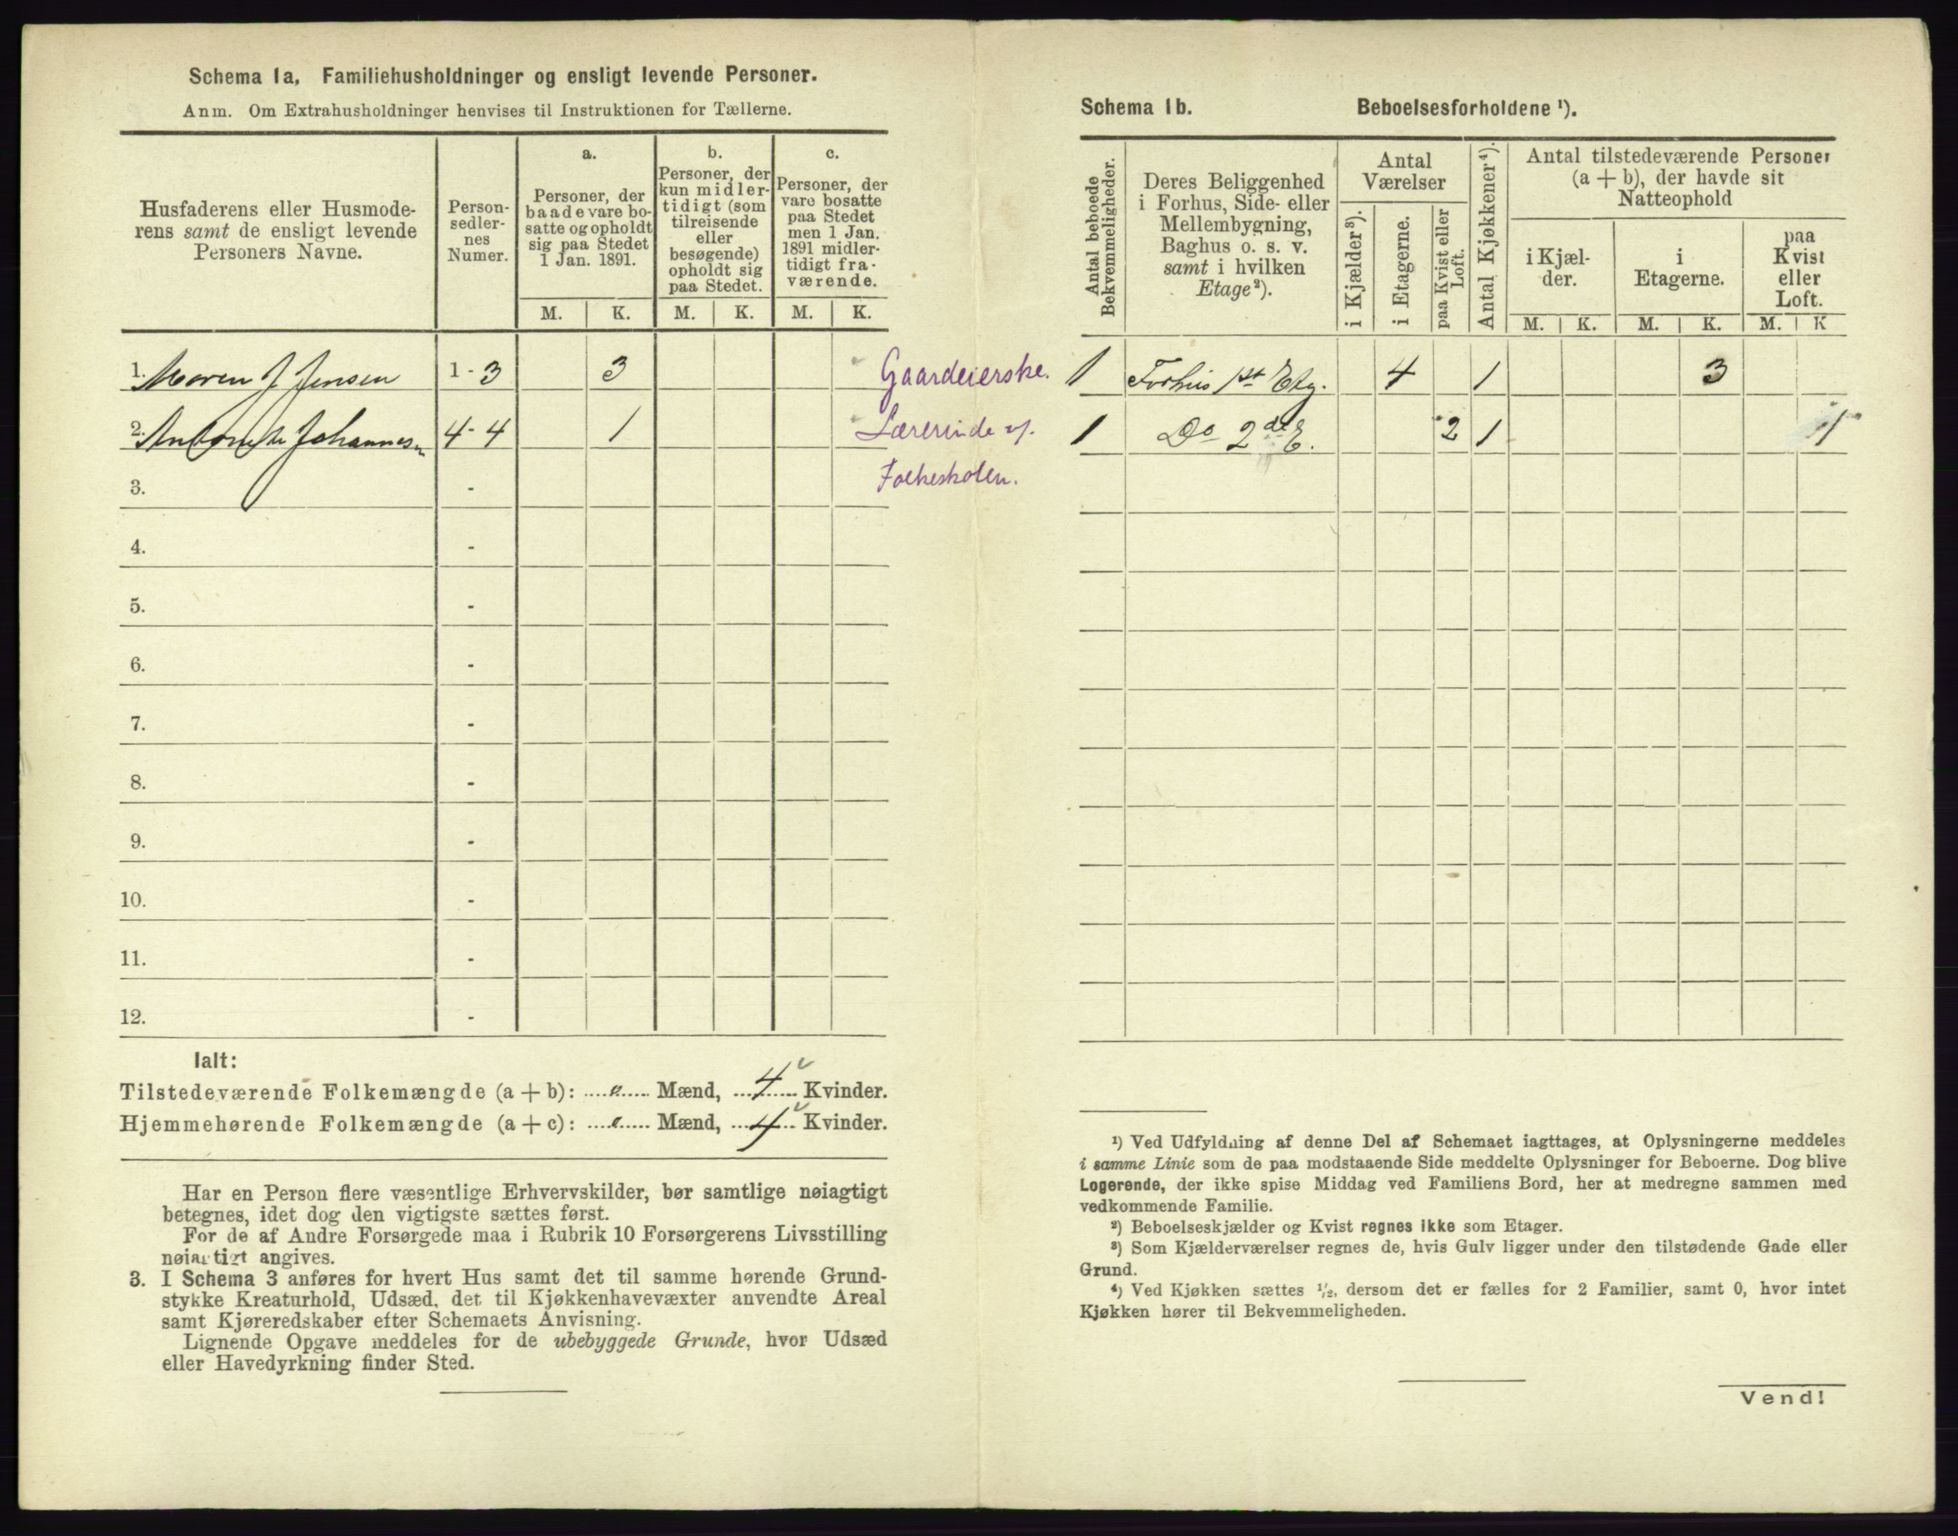 Schema 1a, Familiehusholdninger og ensligt levende Personer.
Anm. Om Extrahusholdninger henvises til Instruktionen for Tællerne.
Husfaderens eller Husmode-
rens samt de ensligt levende
Personers Navne.
Person-
sedler-
nes
Numer.
a.
Personer, der
baade vare bo-
satte og opholdt
sig paa Stedet
1 Jan. 1891.
b.
Personer, der
kun midler-
tidigt (som
tilreisende
eller
besøgende)
opholdt sig
paa Stedet.
c.
Personer, der
vare bosatte
paa Stedet
men 1 Jan.
1891 midler-
tidigt fra-
værende.
M. K. M. K. M. K.
1. Maren J Jensen 1-3 3 Gaardeierske.
2. Johannes 4-4 1 Lærerinde v/.
3. - Folkeskolen.
4. -
5. -
6. -
7. -
8. -
9. -
10. -
11. -
12. -
Ialt:
Tilstedeværende Folkemængde (a + b): Mænd, 4 Kvinder.
Hjemmehørende Folkemængde (a + c): Mænd, 4 Kvinder.
Har en Person flere væsentlige Erhvervskilder, bør samtlige nøiagtigt
betegnes, idet dog den vigtigste sættes først.
For de af Andre Forsørgede maa i Rubrik 10 Forsørgerens Livsstilling
nøiagtigt angives.
3. I Schema 3 anføres for hvert Hus samt det til samme hørende Grund-
stykke Kreaturhold, Udsæd, det til Kjøkkenhavevæxter anvendte Areal
samt Kjøreredskaber efter Schemaets Anvisning.
Lignende Opgave meddeles for de ubebyggede Grunde, hvor Udsæd
eller Havedyrkning finder Sted.
Schema 1b. Beboelsesforholdene ¹).
Antal beboede
Bekvemmeligheder.
Deres Beliggenhed
i Forhus, Side- eller
Mellembygning,
Baghus o. s. v.
samt i hvilken
Etage²).
Antal
Værelser
i Kjælder³).
i Etagerne.
paa Kvist eller
Loft.
Antal Kjøkkener⁴).
Antal tilstedeværende Personer
(a + b), der havde sit
Natteophold
i Kjæl-
der.
i
Etagerne.
paa
Kvist
eller
Loft.
M. K. M. K. M. K
1 Forhus 1st Etg. 4 1 3
1 Do 2det E. 2 1 1
¹) Ved Udfyldning af denne Del af Schemaet iagttages, at Oplysningerne meddeles
i samme Linie som de paa modstaaende Side meddelte Oplysninger for Beboerne. Dog blive
Logerende, der ikke spise Middag ved Familiens Bord, her at medregne sammen med
vedkommende Familie.
²) Beboelseskjælder og Kvist regnes ikke som Etager.
³) Som Kjælderværelser regnes de, hvis Gulv ligger under den tilstødende Gade eller
Grund.
⁴) Ved Kjøkken sættes ½, dersom det er fælles for 2 Familier, samt 0, hvor intet
Kjøkken hører til Bekvemmeligheden.
Vend!